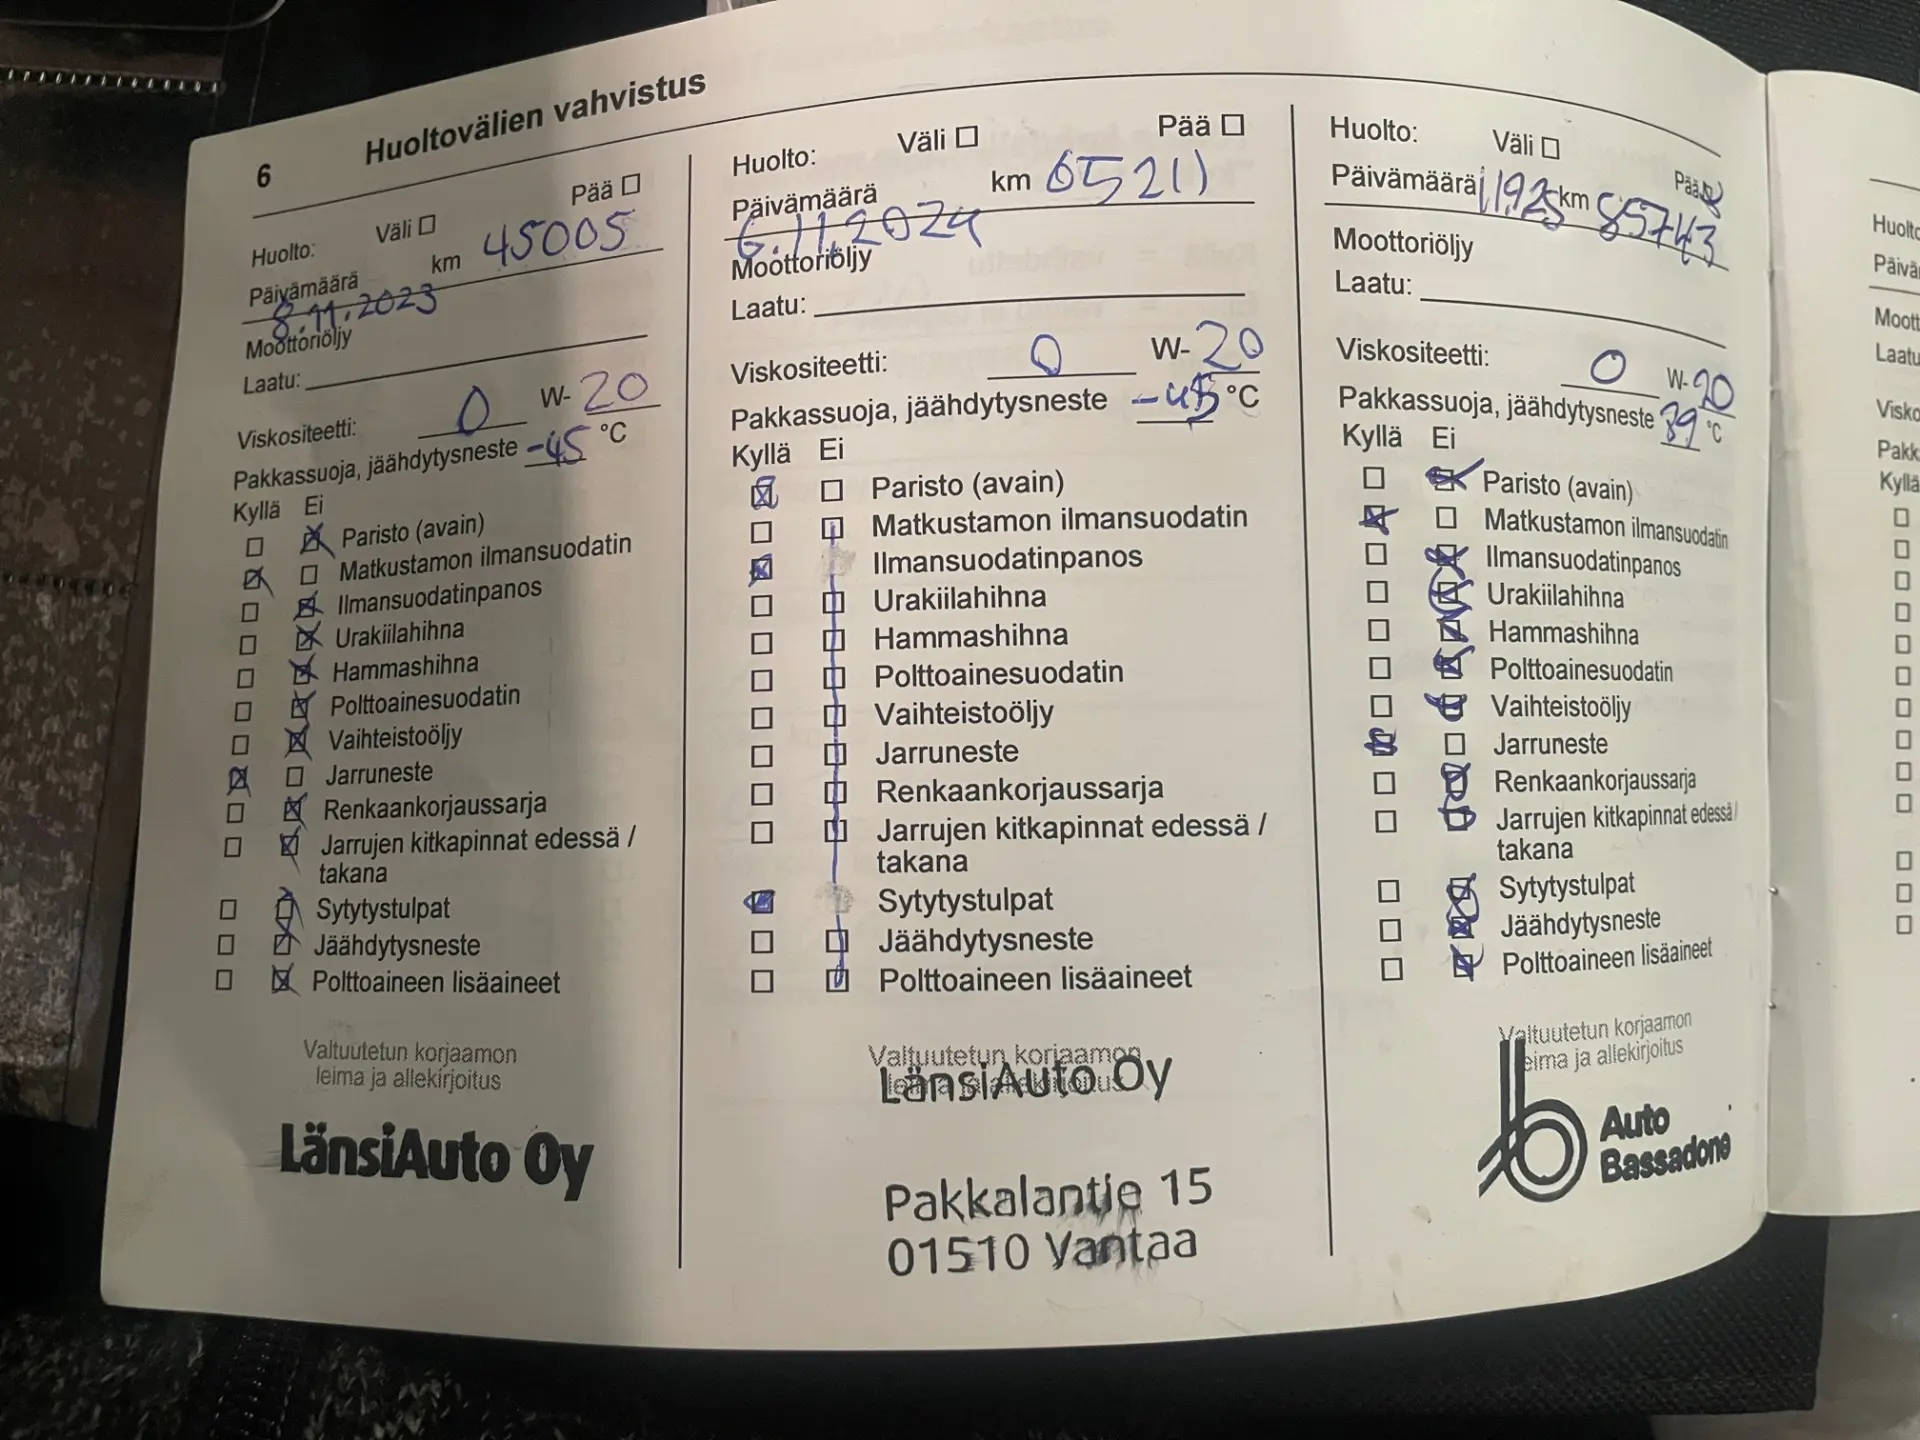 6 Huoltovälien vahvistus
Huolto: Väli Pää
Päivämäärä km 45005
8.11.2023
Moottoriöljy
Laatu:
Viskositeetti: 0 W-20
Pakkassuoja, jäähdytysneste -45 °C
Kyllä Ei
Paristo (avain)
Matkustamon ilmansuodatin
Ilmansuodatinpanos
Urakiilahihna
Hammashihna
Polttoainesuodatin
Vaihteistoöljy
Jarruneste
Renkaankorjaussarja
Jarrujen kitkapinnat edessä /
takana
Sytytystulpat
Jäähdytysneste
Polttoaineen lisäaineet
Valtuutetun korjaamon
leima ja allekirjoitus
LänsiAuto Oy
Huolto: Väli Pää
Päivämäärä km 65211
6.11.2024
Moottoriöljy
Laatu:
Viskositeetti: 0 W-20
Pakkassuoja, jäähdytysneste -45 °C
Kyllä Ei
Paristo (avain)
Matkustamon ilmansuodatin
Ilmansuodatinpanos
Urakiilahihna
Hammashihna
Polttoainesuodatin
Vaihteistoöljy
Jarruneste
Renkaankorjaussarja
Jarrujen kitkapinnat edessä /
takana
Sytytystulpat
Jäähdytysneste
Polttoaineen lisäaineet
Valtuutetun korjaamon
leima ja allekirjoitus
LänsiAuto Oy
Pakkalantie 15
01510 Vantaa
Huolto: Väli Pää
Päivämäärä km 85743
Moottoriöljy
Laatu:
Viskositeetti: 0 W-20
Pakkassuoja, jäähdytysneste 39 °C
Kyllä Ei
Paristo (avain)
Matkustamon ilmansuodatin
Ilmansuodatinpanos
Urakiilahihna
Hammashihna
Polttoainesuodatin
Vaihteistoöljy
Jarruneste
Renkaankorjaussarja
Jarrujen kitkapinnat edessä /
takana
Sytytystulpat
Jäähdytysneste
Polttoaineen lisäaineet
Valtuutetun korjaamon
leima ja allekirjoitus
Auto
Bassadone